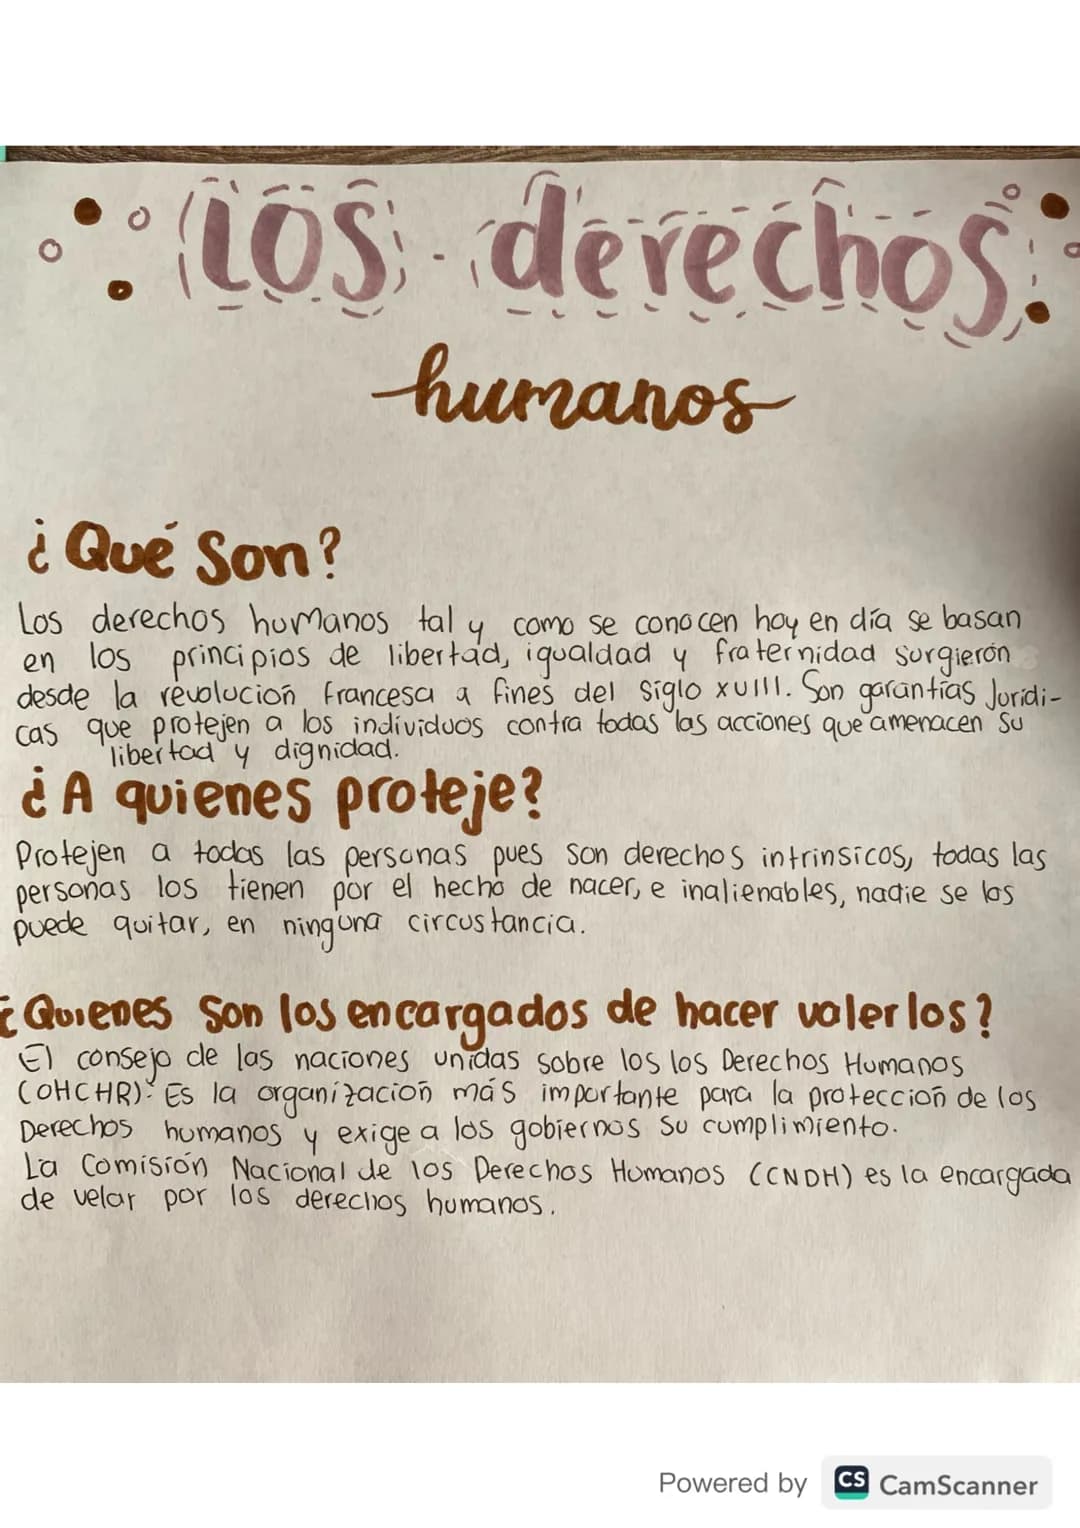 Los derechos
humanos
¿Qué Son?
Los derechos humanos tal y como se conocen hoy en día se basan
en los principios de libertad, igualdad y fraternidad surgierón
desde la revolución francesa a fines del siglo XVIII. Son garantías Jurídi-
cas que protejen a los individuos contra todas las acciones que amenacen su
libertad y dignidad.
¿A quienes proteje?
Protejen a todas las personas pues son derechos intrinsicos, todas las
personas los tienen por el hecho de nacer, e inalienables, nadie se los
puede quitar, en ninguna circustancia.
¿Quienes Son los encargados de hacer valerlos?
El consejo de las naciones unidas sobre los los Derechos Humanos
(OHCHR): Es la organización más importante para la protección de los
Derechos humanos y exige a los gobiernos su cumplimiento.
La Comisión Nacional de los Derechos Humanos (CNDH) es la encargada
de velar por los derechos humanos.
Powered by CS CamScanner